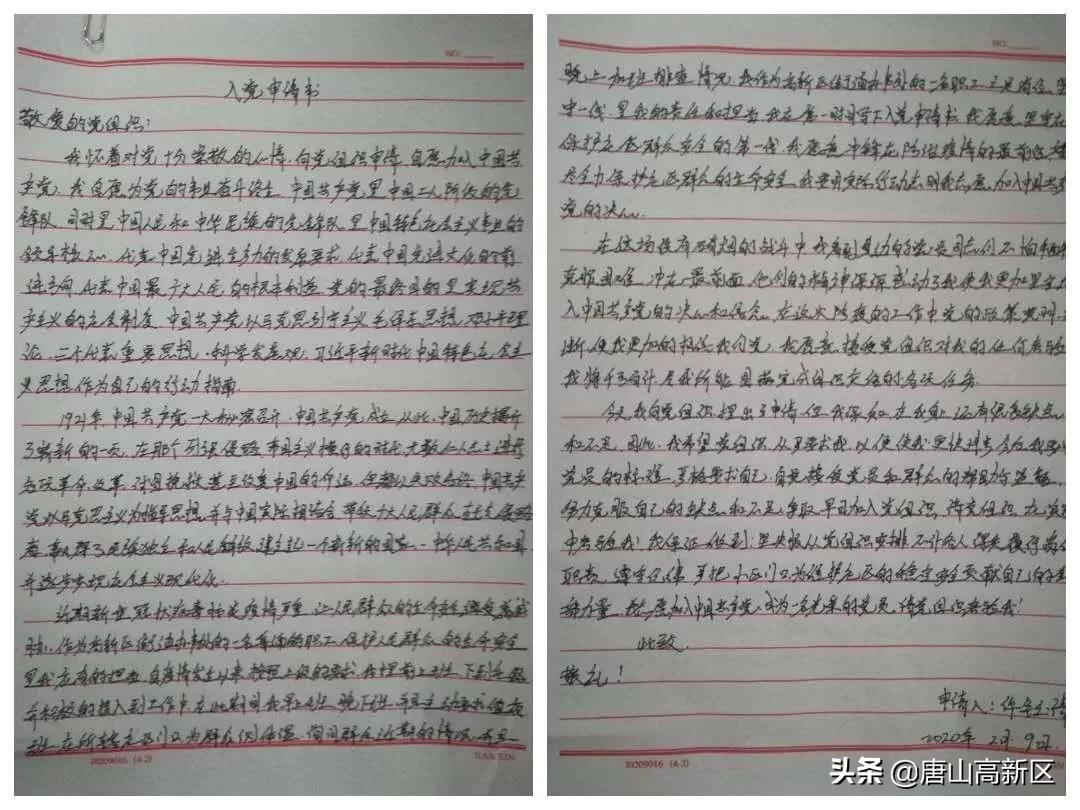 NO.
入党申请书
敬爱的党组织：
我怀着对党十分崇敬的心情，向党组织申请，自愿加入中国共
产党，我自愿为党的事业奋斗终生，中国共产党是中国工人阶级的先
锋队，同时是中国人民和中华民族的先锋队，是中国特色社会主义事业的
领导核心，代表中国先进生产力的发展要求，代表中国先进文化的前
进方向，代表中国最广大人民的根本利益，党的最终目的是实现共
产主义的社会制度，中国共产党以马克思列宁主义，毛泽东思想，邓小平理
论，三个代表重要思想，科学发展观，习近平新时代中国特色社会主
义思想，作为自己的行动指南。
1921年，中国共产党一大秘密召开，中国共产党成立，从此，中国历史揭开
了崭新的一页，在那个列强侵略，帝国主义横行的时代，无数仁人志士进行
各项改革，试图挽救甚至改变中国的命运，但都以失败告终，中国共产
党以马克思主义为指导思想，并与中国实际相结合，带领广大人民群众
取得了民族独立和人民解放，建立起一个崭新的国家，中华人民共和国
并逐步实现社会主义现代化。
近期新型冠状病毒肺炎疫情严重，让人民群众的生命安全遭受着威
胁，作为高新区街道办事处的一名普通的职工，保护人民群众的生命安全
是我应有的担当，自疫情发生以来，按照上级的要求，我提前上班，下到社区
并积极的投入到工作中，在此期间我早上班，晚下班，并且主动要求值夜
班，在所辖社区门口为群众测体温，询问群众近期的情况，并且
R0209046 (4-2)
NO.
晚上加班排查情况，我作为高新区街道办事处的一名职工
中一线，是我的责任和担当，我在第一时间写下入党申请书，我愿意
保护社区群众安全的第一线，我愿意冲锋在防治疫情的最前沿
尽全力保护社区群众的生命安全，我要用实际行动去
党的决心。
在这场没有硝烟的战斗中，我看到身边的党员同志们不怕
克服困难，冲在最前面，他们的精神深深感动了我，使我更加坚定
入中国共产党的决心和信念，在这次防疫的工作中党的政策
使我更加的相信我们党，我愿意接受党组织对我的任何考验
我将不计，尽我所能，圆满完成组织交给的各项任务。
今天我向党组织提出了申请，但我深知，在我身上还有很多缺点
和不足，因此，我希望党组织从严要求我，以便使我更快进步，今后我要
党员的标准，严格要求自己，自觉接受党员和群众的帮助与监督
努力克服自己的缺点和不足，争取早日加入党组织，请党组织在
中考验我！我保证做到：坚决服从党组织安排，不计个人得失
职责，把小区门口为维护社区的稳定安全贡献自己的
力量，我志愿加入中国共产党，成为一名光荣的党员，请党组织考验我！
此致
敬礼！
申请人：
2020年 2月 9日
R0209046 (4-2)
头条 @唐山高新区